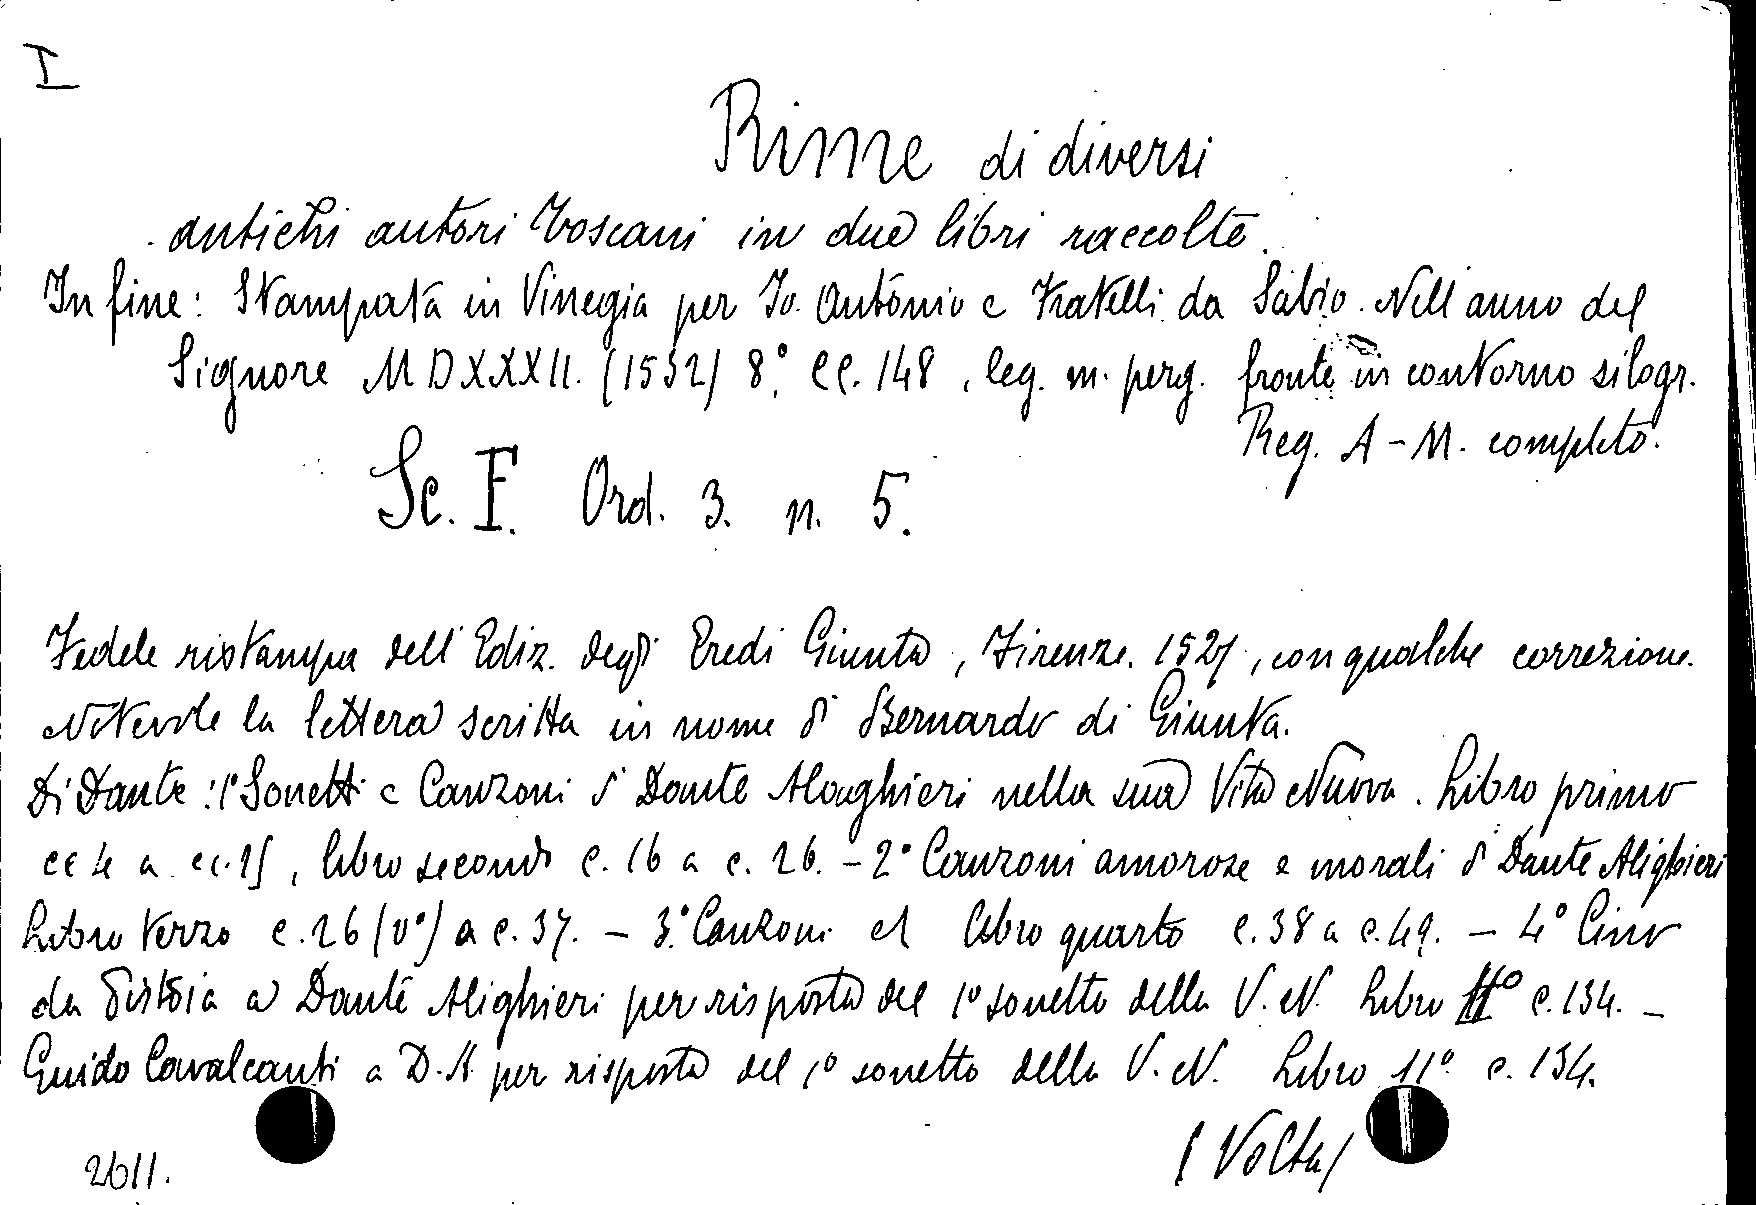 I
Rime di diversi
antichi autori Toscani in due libri raccolte.
In fine: Stampata in Vinegia per Jo. Antonio e Fratelli da Sabio. Nell'anno del
Signore MDXXXII. (1532) 8.° cc. 148, leg. m. perg. fronte in contorno silogr.
Reg. A-M. completo.
Sc. F. Ord. 3. n. 5.
Fedele ristampa dell'Ediz. degli Eredi Giunta, Firenze. 1527, con qualche correzione.
Notevole la lettera scritta in nome di Bernardo di Giunta.
Di Dante: 1° Sonetti e Canzoni di Dante Alaghieri nella sua Vita Nuova. Libro primo
cc 4 a cc. 15, libro secondo c. 16 a c. 26. - 2° Canzoni amorose e morali di Dante Alighieri
Libro terzo c. 26 (v°) a c. 37. - 3.° Canzoni el Libro quarto c. 38 a c. 49. - 4° Cino
da Pistoia a Dante Alighieri per risposta del 1° sonetto della V. N. Libro 11° c. 134. -
Guido Cavalcanti a D. A. per risposta del 1° sonetto della V. N. Libro 11° c. 134.
(Volta)
2611.